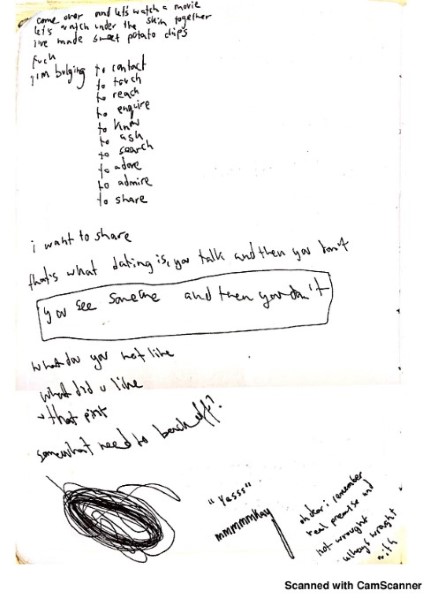 come over and let's watch a movie
let's watch under the skin together
I've made sweet potato chips
fuck
I'm bulging to contact
to touch
to reach
to enquire
to know
to ask
to search
to adore
to admire
to share
i want to share
that's what dating is, you talk and then you don't
you see someone and then you don't
what do you not like
what did u like
that part
somewhat need to back off?
"Yesss"
mmmmmkay
oh dear i remember
real promise and
not wrought
wrought
with
Scanned with CamScanner